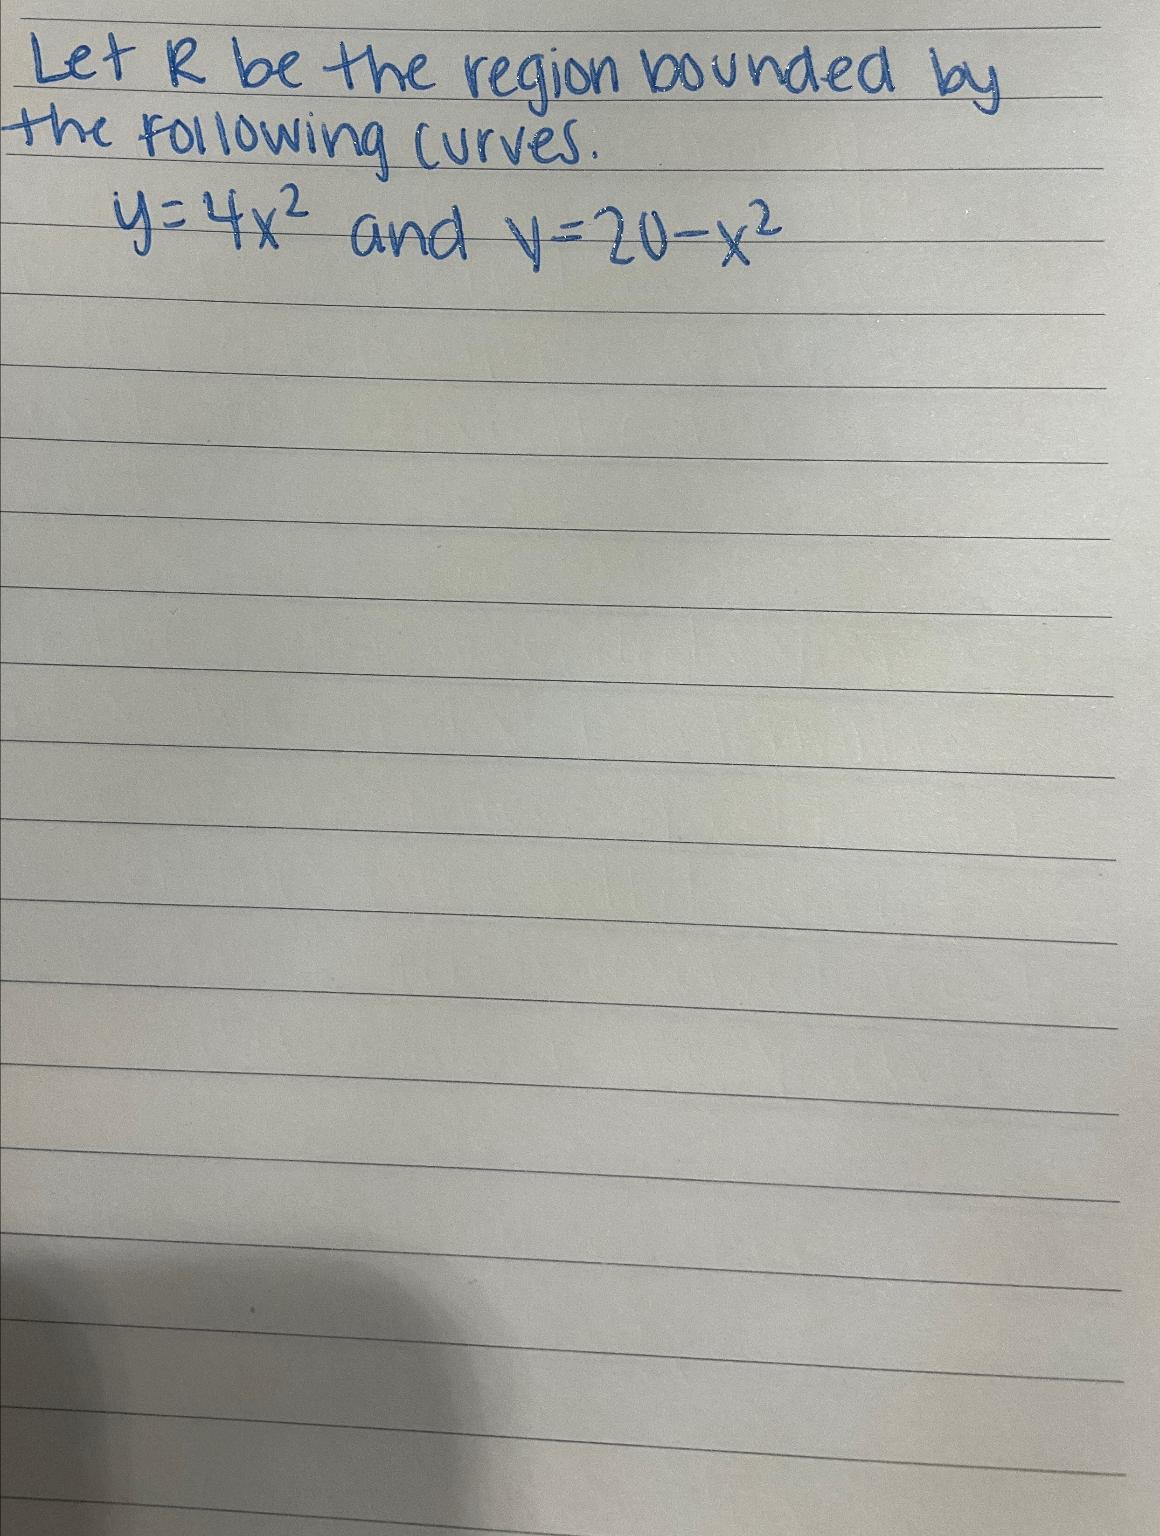 Let R be the region bounded by
the following curves.
y=4x² and y=20-x²